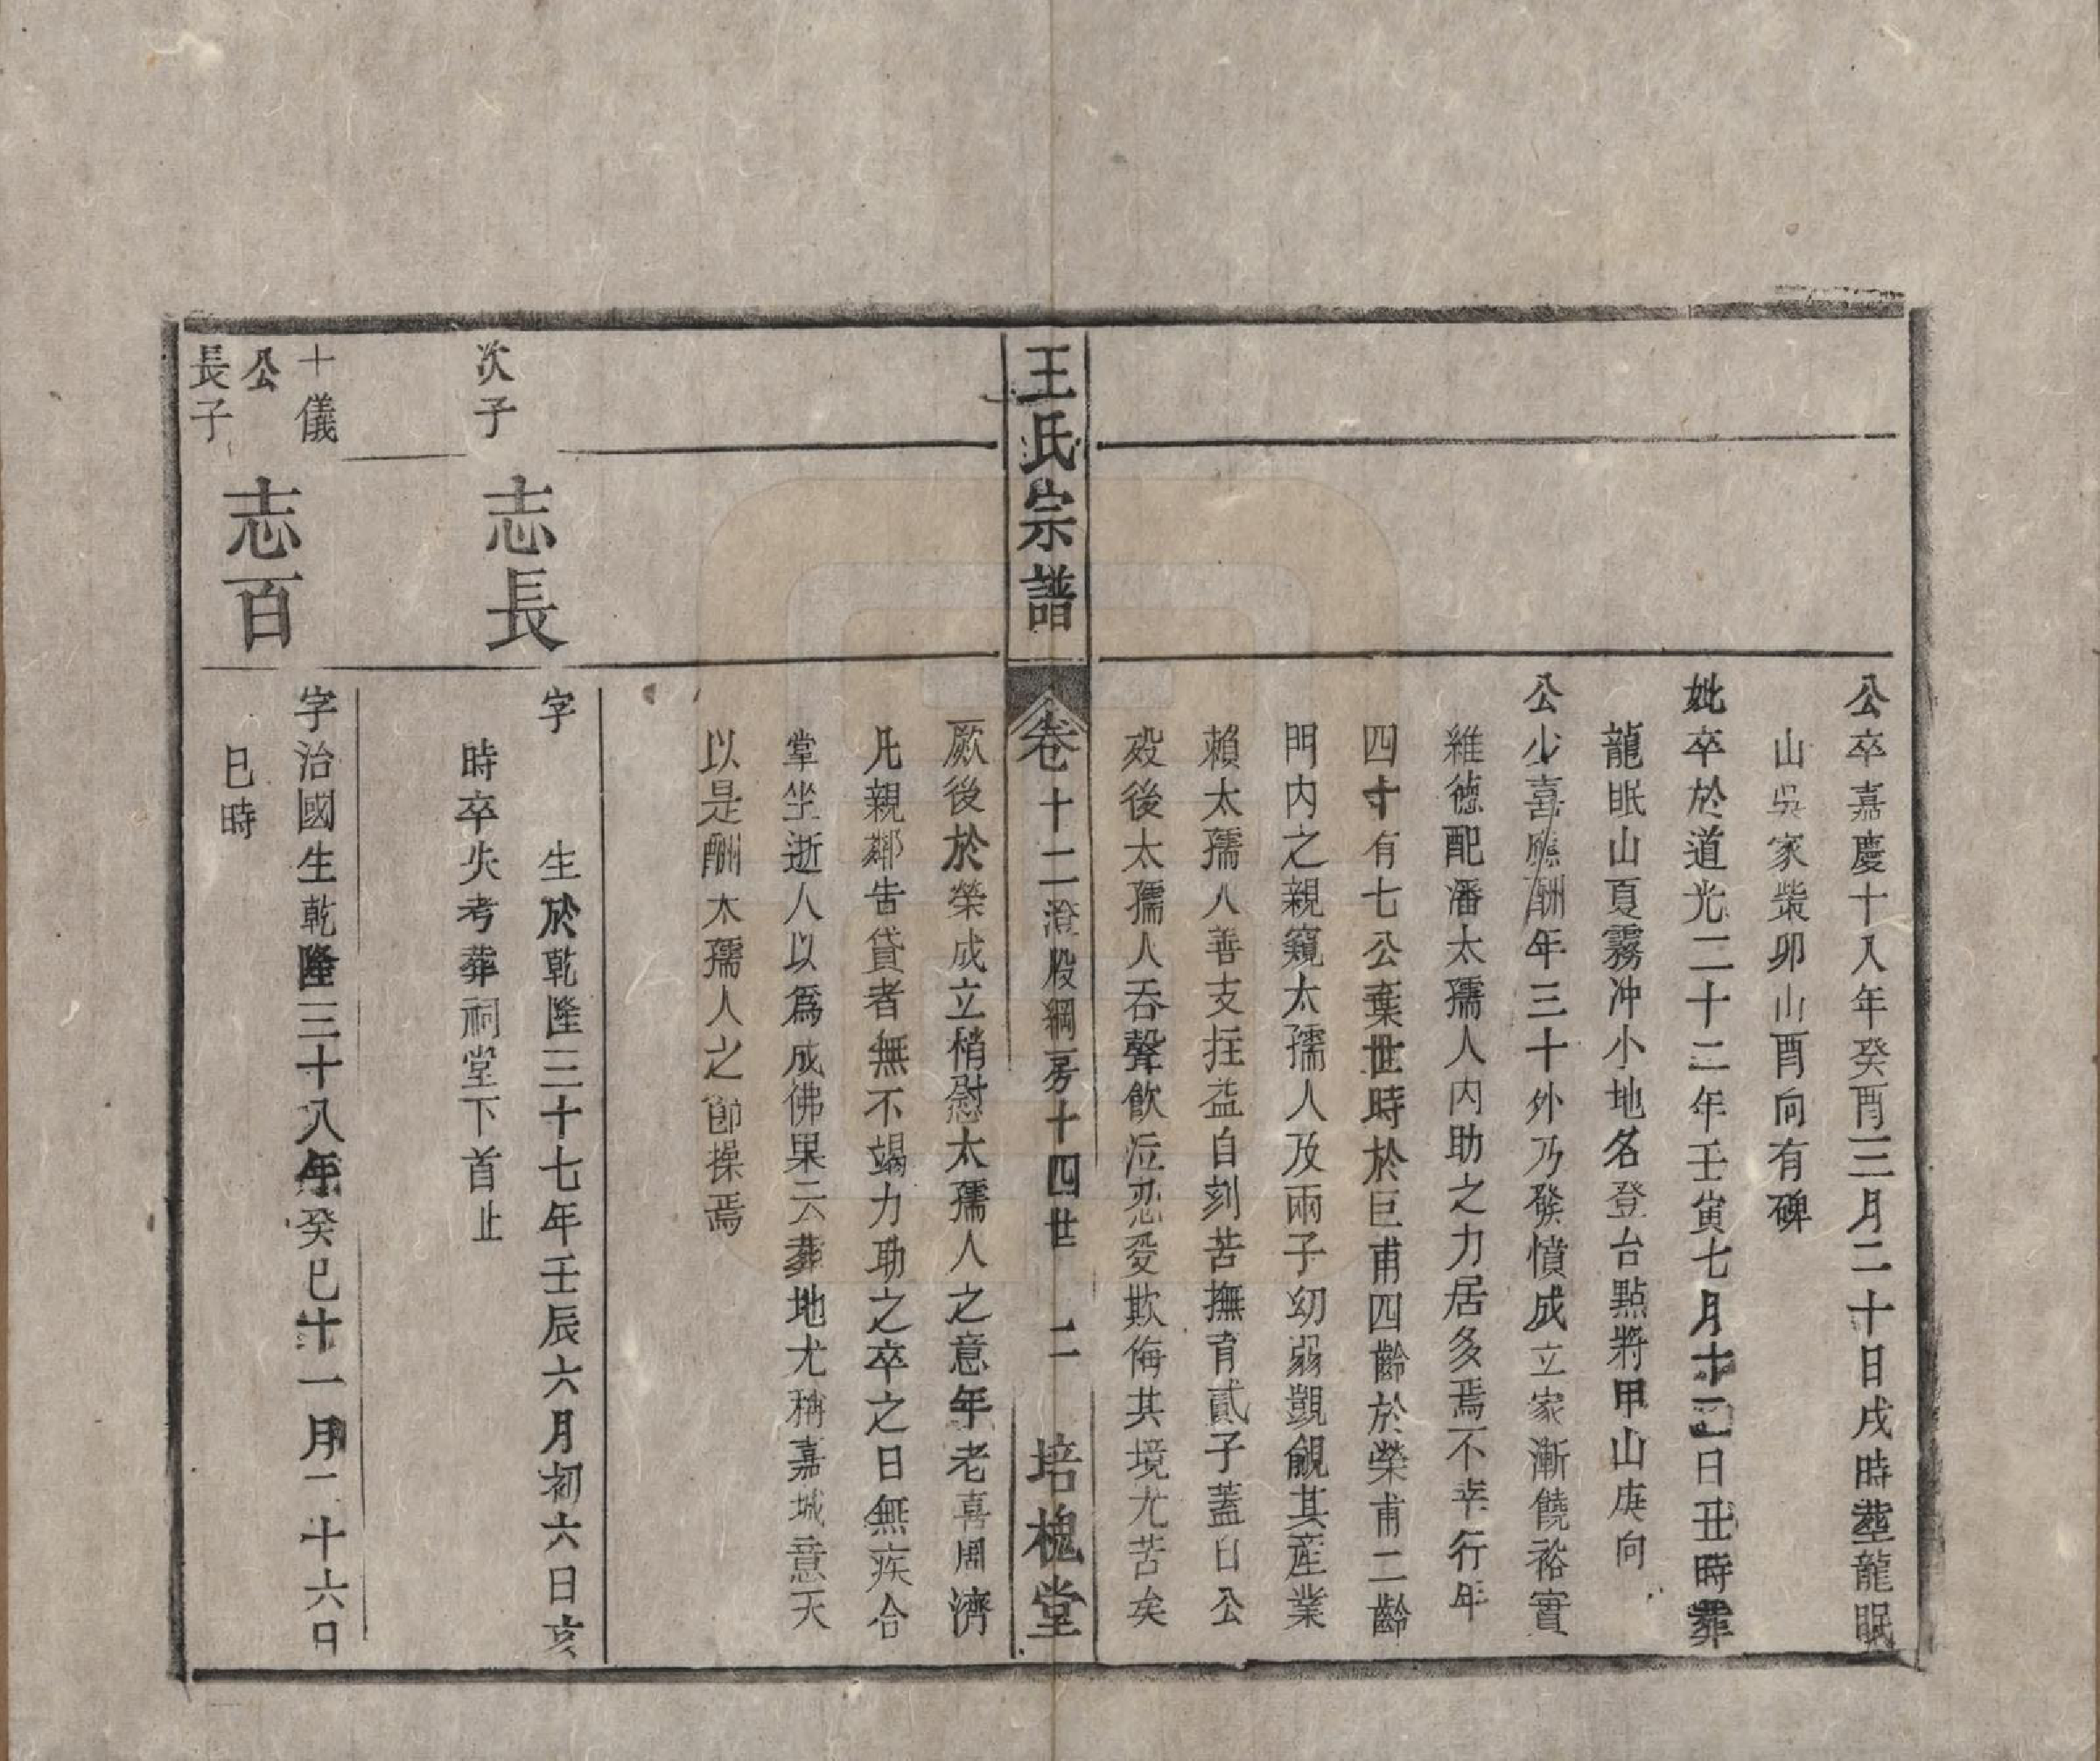 公卒嘉慶十八年癸酉三月二十日戌時塟龍眠
山吳家柴卯山酉向有碑
妣卒於道光二十二年壬寅七月十二日丑時葬
龍眠山夏霧冲小地名登台點將甲山庚向
公少喜應酬年三十外乃發憤成立家漸饒裕實
維德配潘太孺人内助之力居多焉不幸行年
四十有七公棄世時於巨甫四齡於榮甫二齡
門内之親窺太孺人及兩子幼弱覬覦其産業
賴太孺人善支拄益自刻苦撫育貳子蓋自公
歿後太孺人吞聲飲泣忍受欺侮其境尤苦矣
王氏宗譜
卷十二澄股綱房十四世 二 培槐堂
厥後於榮成立稍慰太孺人之意年老喜周濟
凡親鄰告貸者無不竭力助之卒之日無疾合
掌坐逝人以爲成佛果云葬地尤稱嘉城意天
以是酬太孺人之節操焉
次子
志長
字 生於乾隆三十七年壬辰六月初六日亥
時卒失考葬祠堂下首止
十儀
公
長子
志百
字治國生乾隆三十八年癸巳十一月二十六日
巳時